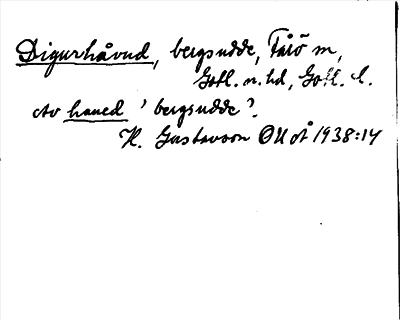 Digurhåvud, bergsudde, Fårö sn,
Gotl. n. hd, Gotl. l.
Av haued 'bergsudde'.
H. Gustavson OUoÅ 1938:14